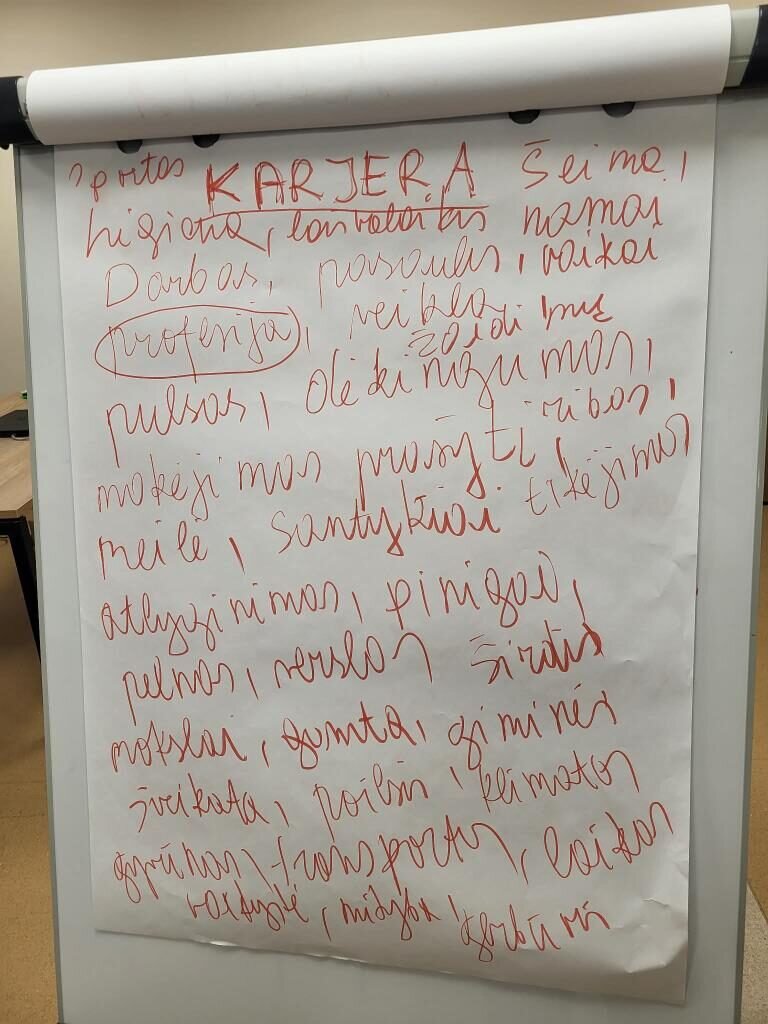 sportas KARJERA šeima,
higiena, laisvalaikis namai
Darbas, pasaulis, vaikai
profesija, veikla
žaidimų
pulsas, dėkingumas,
mokėjimas prašyti, ribos,
meilė, santykiai tikėjimas
atlyginimas, pinigai,
pelnas, verslas širdis
mokslai, gamta, giminės
sveikata, poilsis, klimatas
gyvūnai, transportas, laikas
valstybė, mityba,